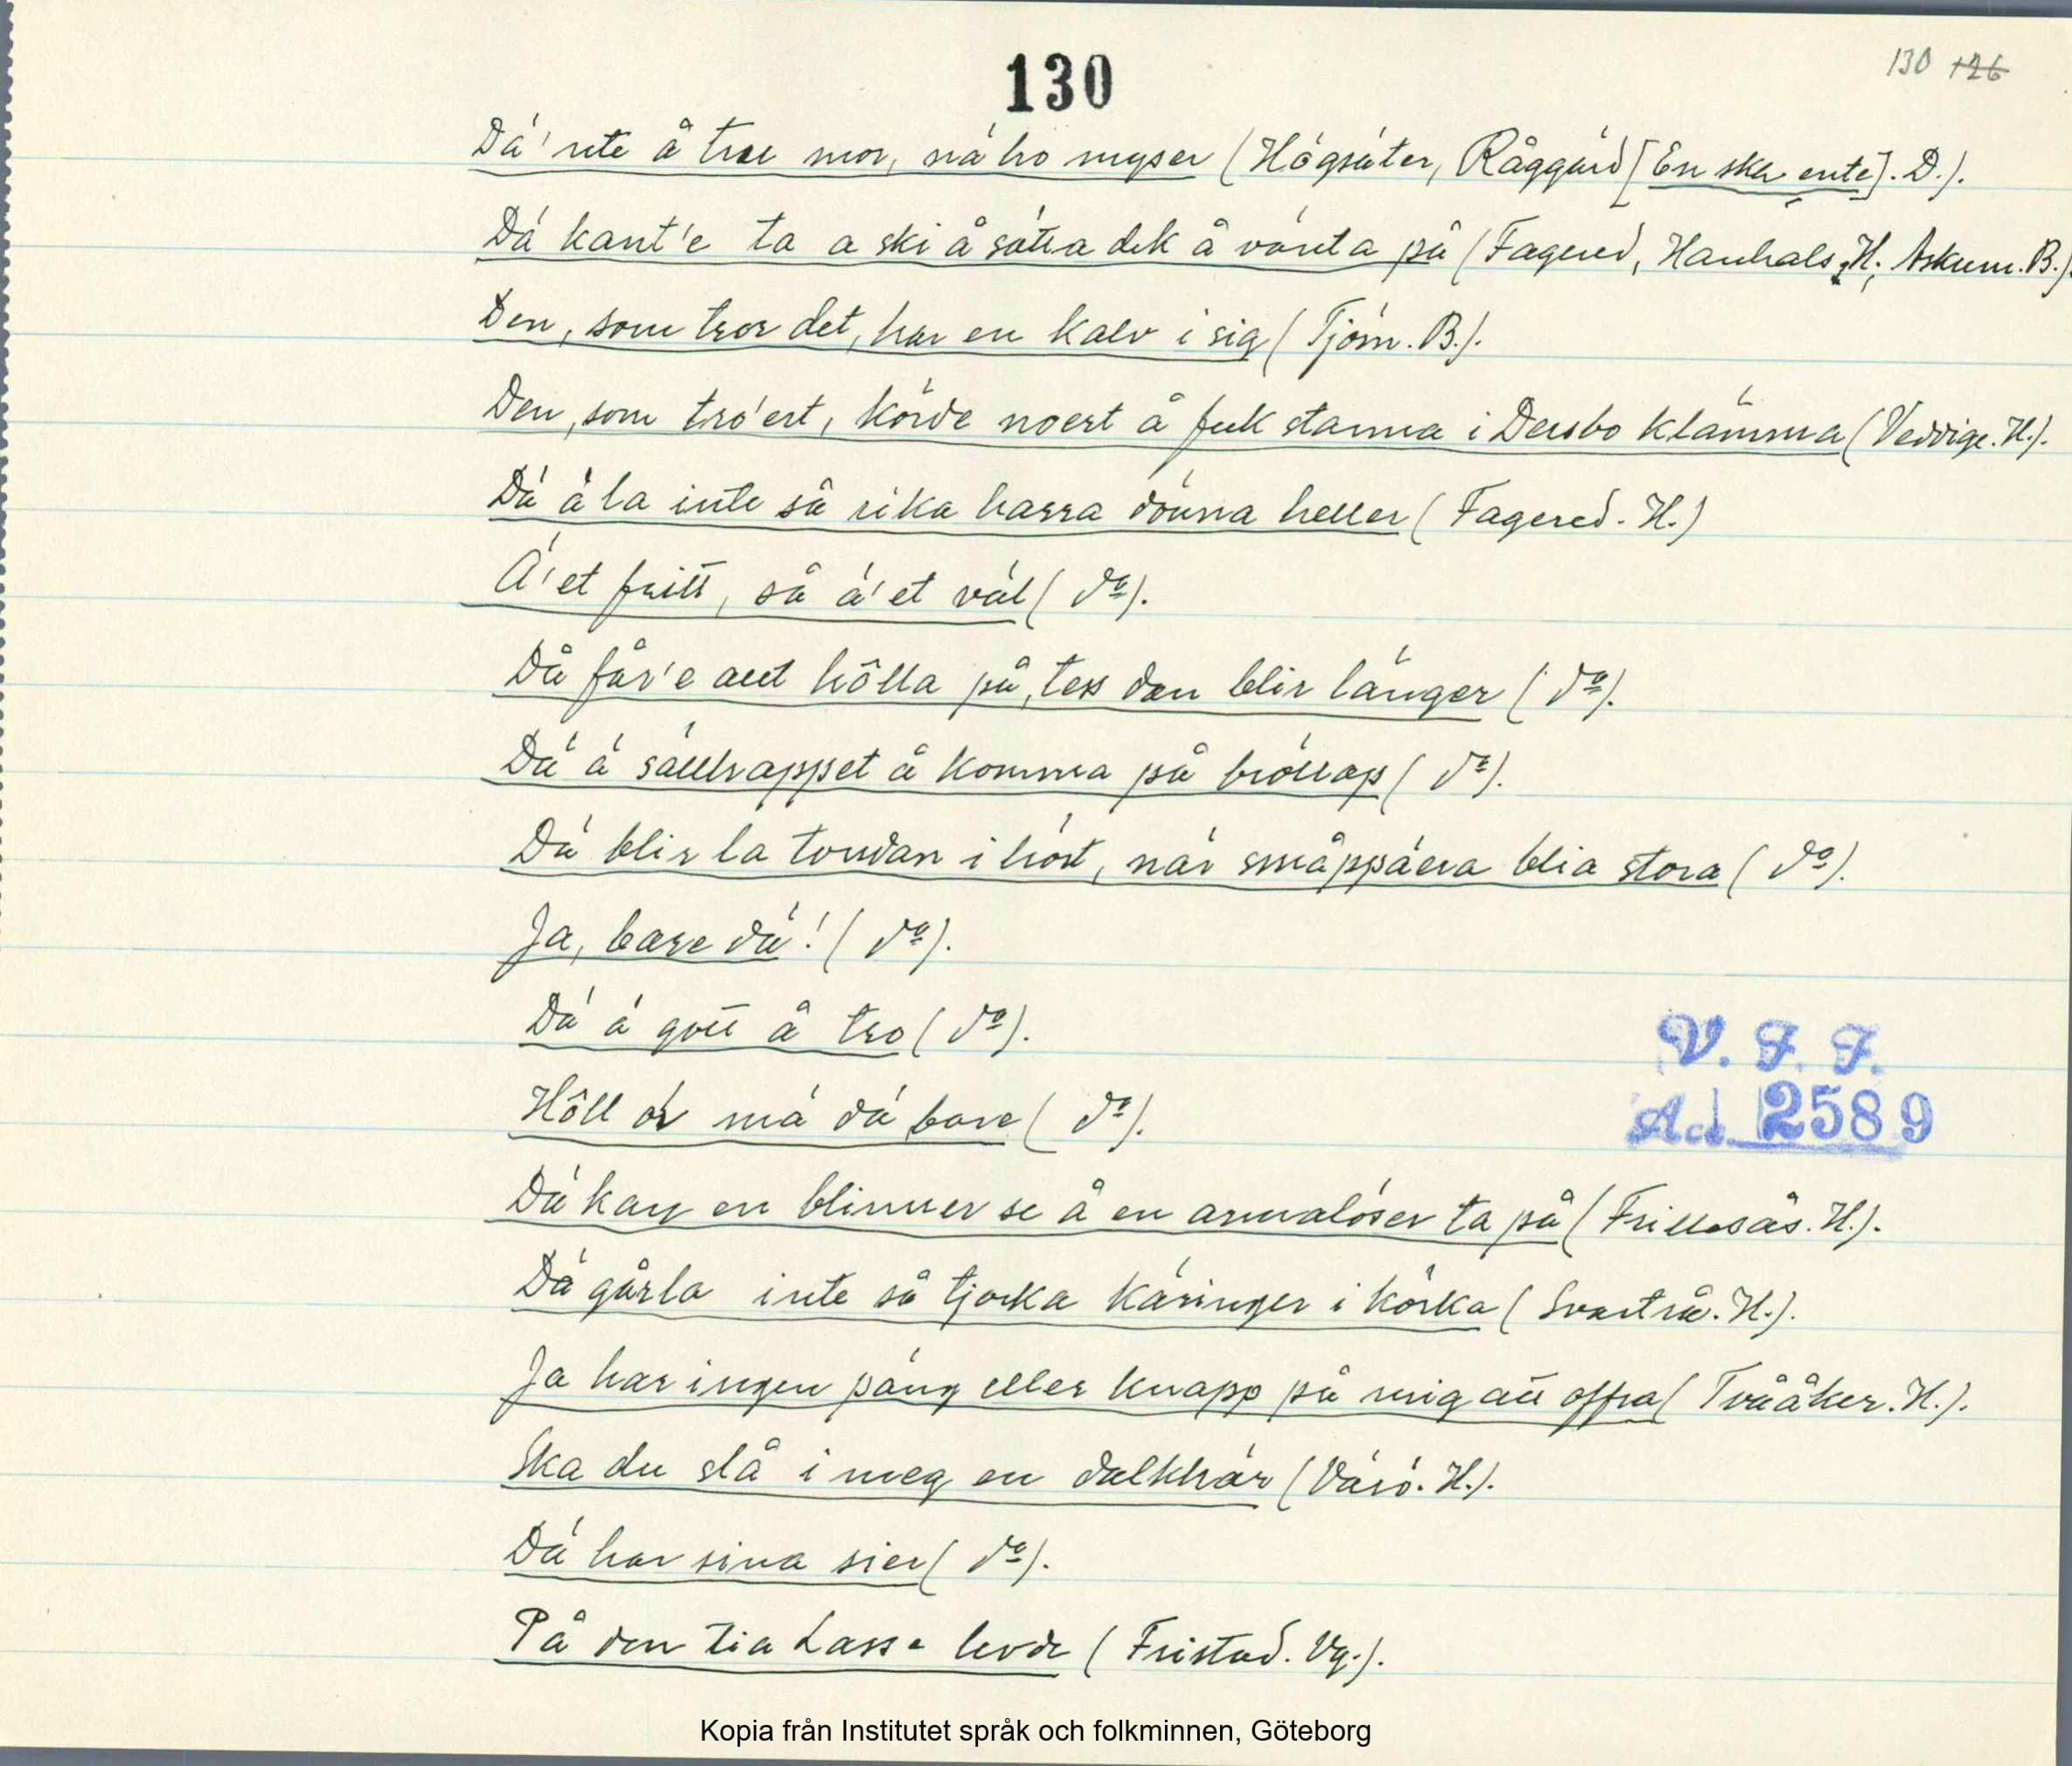 130
130 126
Dä' nte å tro mor, nä ho myser (Högsäter, Råggärd [En ska ente]. D.).
Dä kant'e ta a ski å sätta dek å vänta på (Fagered, Hanhals. H; Askum. B.)
Den, som tror det, har en kalv i sig (Tjörn. B.).
Den, som tro'ert, körde noert å feck stanna i Dersbo klämma (Veddige. H.).
Dä ä la inte så rika harra dönna heller (Fagered. H.)
Ä'et fritt, så ä'et väl (do).
Då får'e att hôlla på, tess dan blir länger (do).
Dä ä sällhappet å komma på bröllap (do).
Dä blir la tordan i höst, når småppäera blia stora (do).
Ja, bare dä! (do).
Dä ä gott å tro (do).
Hôll mä dä bare (do).
Dä kan en blinner se å en armalöser ta på (Frillesås. H.).
Dä gårla inte så tjocka käringer i körka (Svartrå. H.).
Ja har ingen päng eller knapp på mig att offra (Tvååker. H.).
Ska du slå i meg en dalkhär (Värö. H.).
Dä har sina sier (do).
På den tia Lasse levde (Fristad. Vg.).
V. F. F.
Ad. 2589
Kopia från Institutet språk och folkminnen, Göteborg